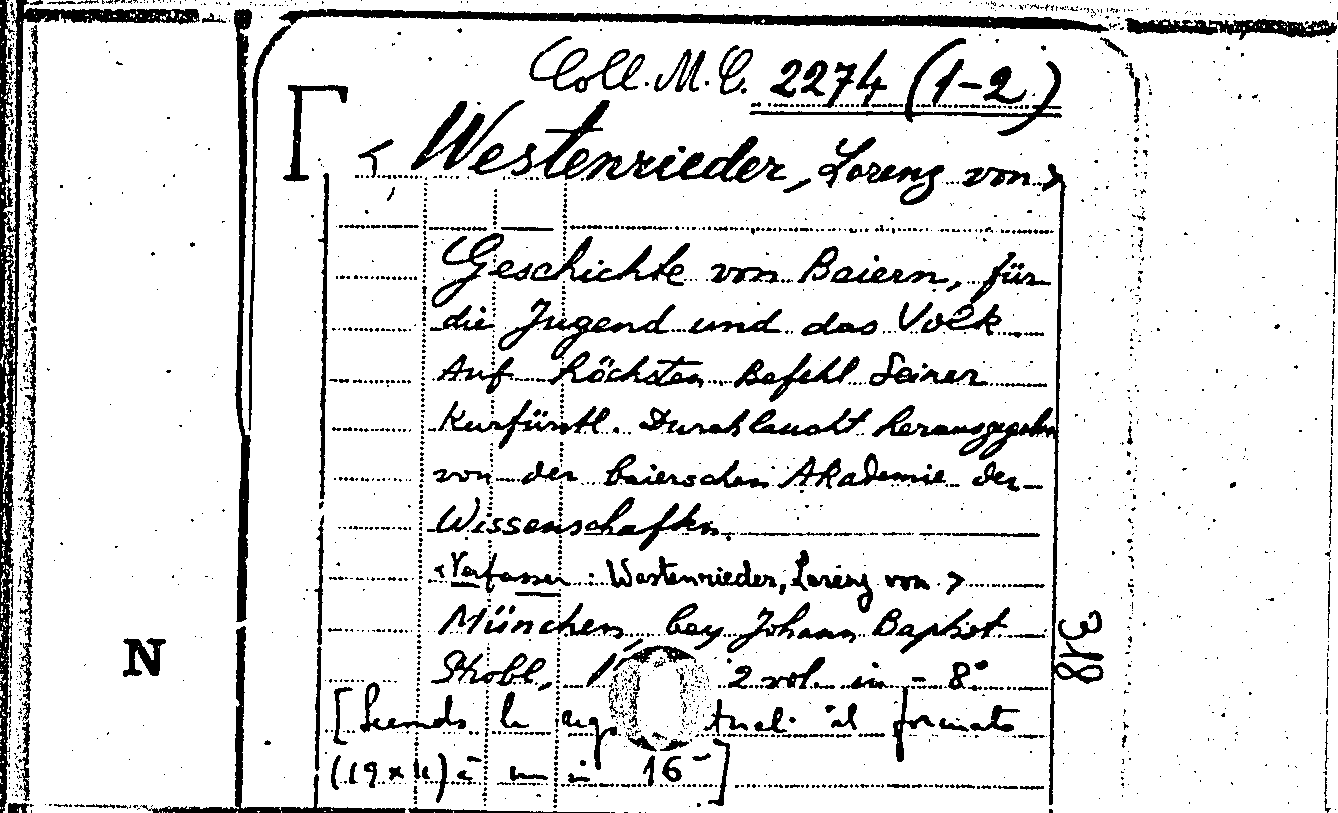 Coll. M. C. 2274 (1-2)
< Westenrieder, Lorenz von >
Geschichte von Baiern, für
die Jugend und das Volk
Auf höchsten Befehl Seiner
Kurfürstl. Durchlaucht herausgegeben
von der baierschen Akademie der
Wissenschaften.
< Verfasser : Westenrieder, Lorenz von >
München, bey Johann Baptist
Strobl, 1 2 vol. in - 8°
[ il formato
(19 x 11) è un in 16° ]
318
N